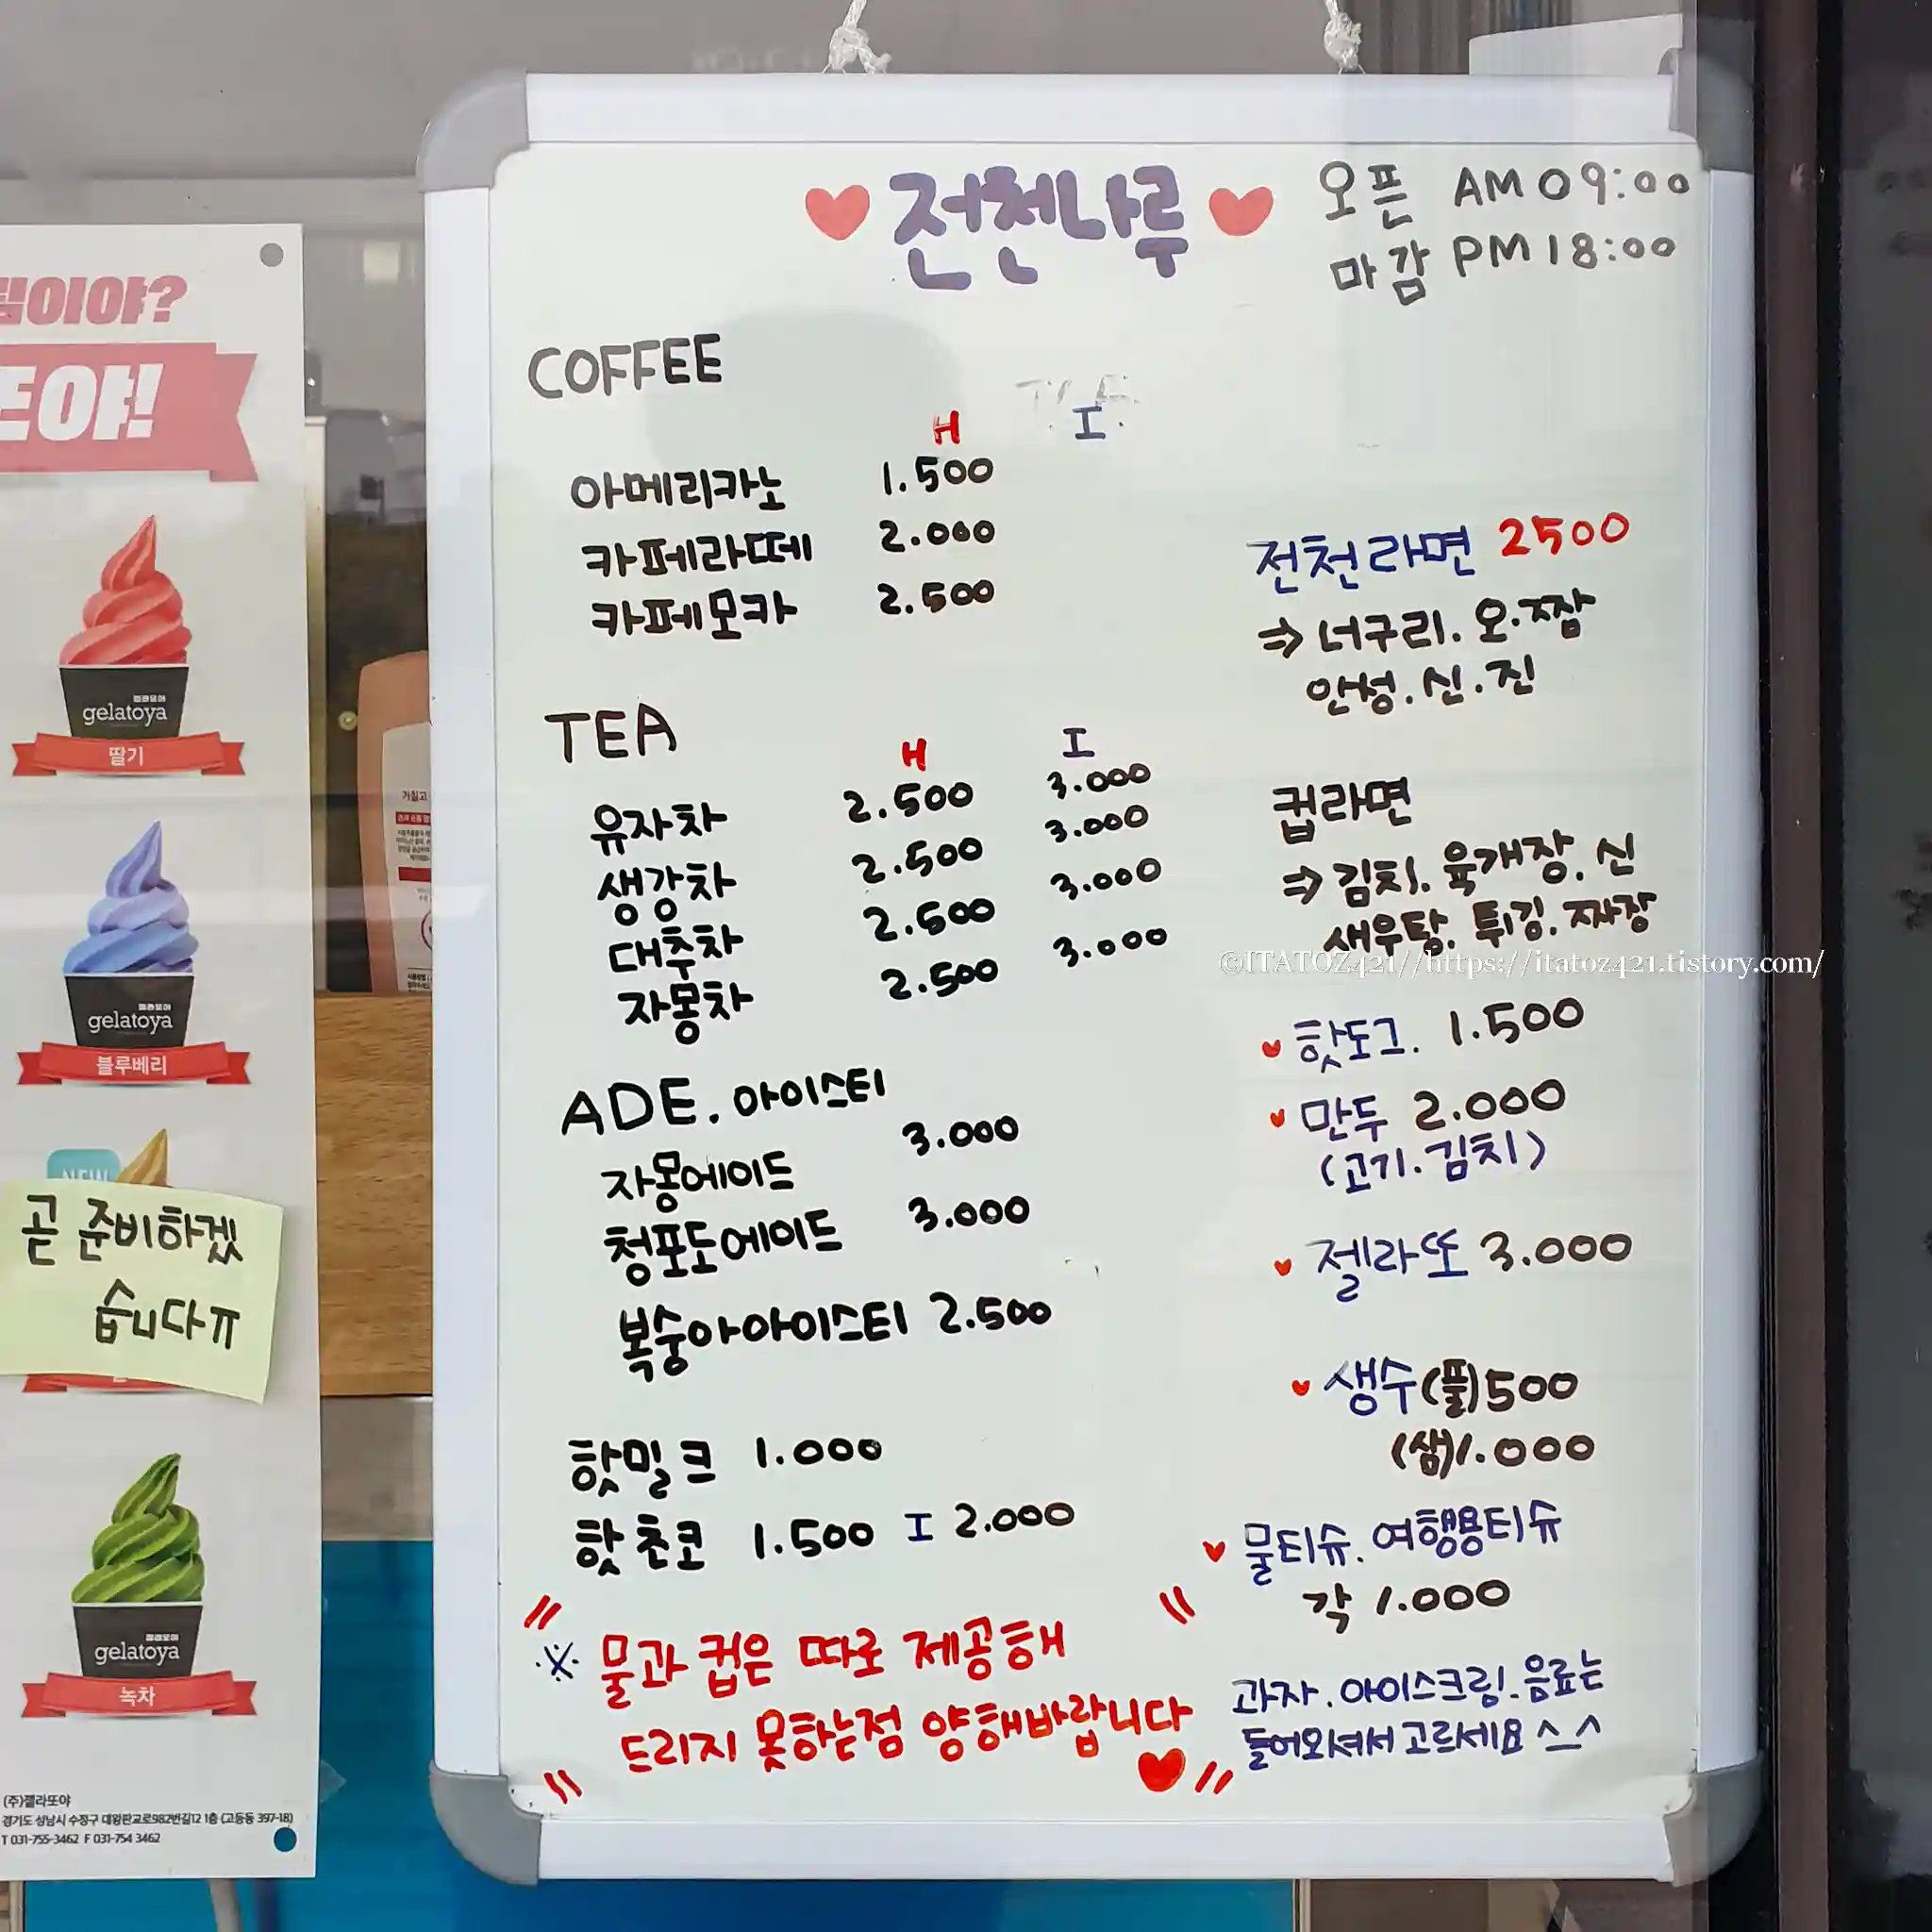 팀이야?
또야!
gelatoya
딸기
gelatoya
블루베리
NEW
곧 준비하겠
습니다ㅠ
gelatoya
녹차
(주)젤라또야
경기도 성남시 수정구 대왕판교로982번길12 1층 (고등동 397-18)
T 031-755-3462 F 031-754 3462
전천나루
오픈 AM 09:00
마감 PM 18:00
COFFEE
H I
아메리카노 1.500
카페라떼 2.000
카페모카 2.500
TEA
H I
유자차 2.500 3.000
생강차 2.500 3.000
대추차 2.500 3.000
자몽차 2.500 3.000
ADE. 아이스티
자몽에이드 3.000
청포도에이드 3.000
복숭아아이스티 2.500
핫밀크 1.000
핫초코 1.500 I 2.000
※ 물과 컵은 따로 제공해
드리지 못하는점 양해바랍니다
전천라면 2500
⇒ 너구리. 오.짬
안성.신.진
컵라면
⇒ 김치. 육개장. 신
새우탕. 튀김. 짜장
©ITATOZ421//https://itatoz421.tistory.com/
핫도그. 1.500
만두 2.000
(고기.김치)
젤라또 3.000
생수(풀)500
(쌤)1.000
물티슈. 여행용티슈
각 1.000
과자.아이스크림.음료는
들어오셔서 고르세요 ^_^